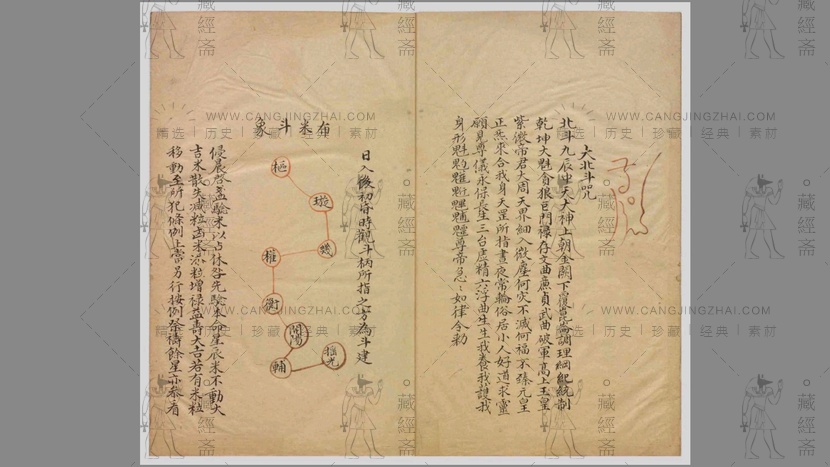 大北斗咒
北斗九辰中天大神上朝金闕下覆崑崙調理綱紀統制
乾坤大魁貪狼巨門祿存文曲廉貞武曲破軍高上玉皇
紫微帝君大周天界細入微塵何灾不滅何福不臻元皇
正炁來合我身天罡所指晝夜常輪俗居小人好道求靈
願見尊儀永保長生三台虛精六淳曲生生我養我護我
身形魁𩲃𩵄尊帝急急如律令勅
日入後初昏時觀斗柄所指之方為斗建
布米斗象
樞
璇
璣
權
衡
開陽
輔
摇光
侵晨啓盖驗米以占休咎先驗本命星辰米不動大
吉米散失減粒凶米添粒增禄益壽大吉若有米粒
移動至所犯條例上當另行按例祭禱餘星亦叅看
WWW.CANGJINGZHAI.COM
精选 历史 珍藏 经典 素材
藏經斎